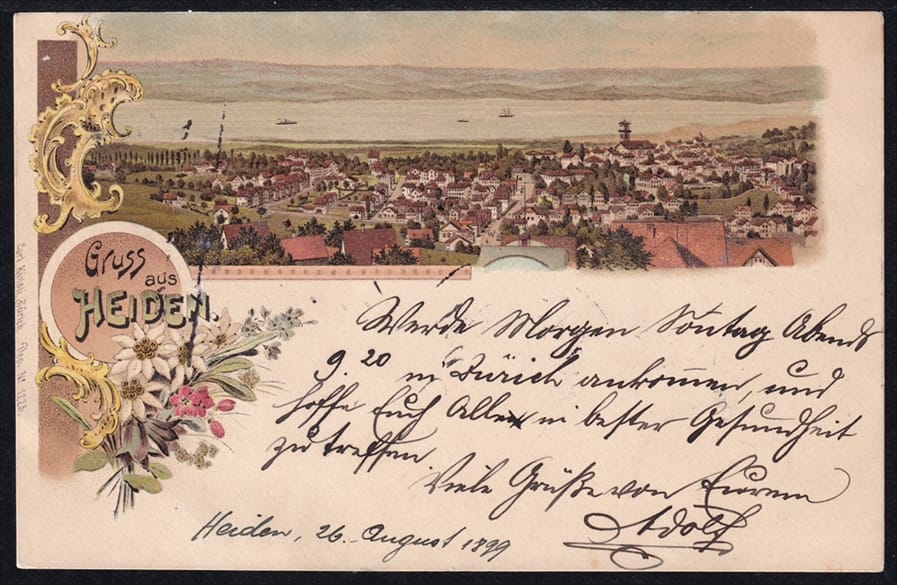 Gruss
aus
HEIDEN.
Werde Morgen Sontag Abends
9.20 in Zürich ankomen, und
hoffe Euch Alle in bester Gesundheit
zu treffen
Viele Grüße von Eurem
Adolf
Heiden, 26. August 1899
Carl Künzli, Zürich Dep. Nº 1223